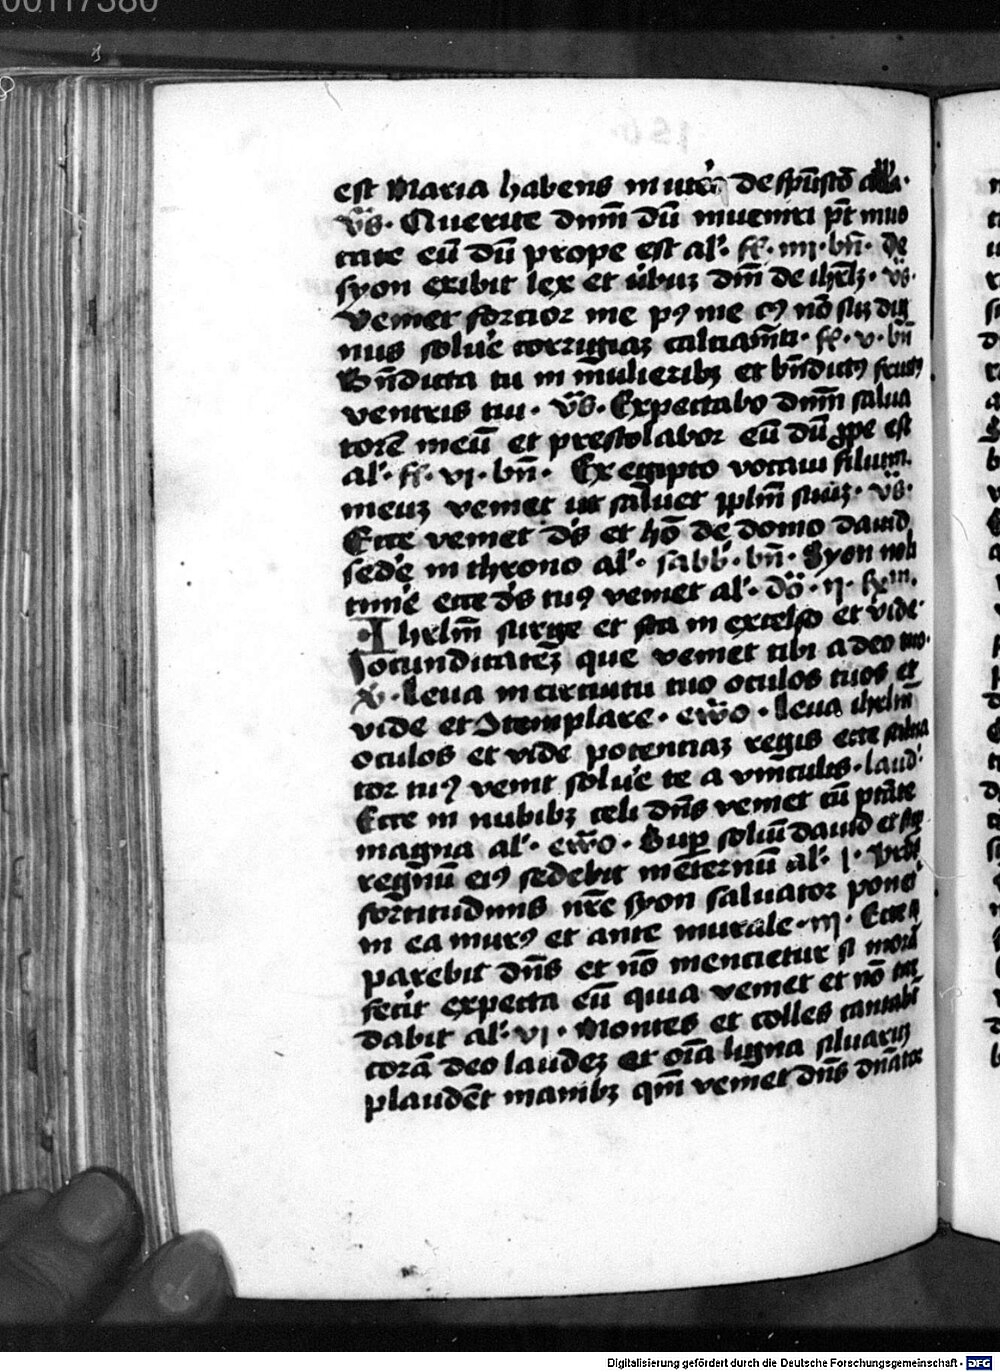 00117380
est Maria habens in utero de spūsctō alla.
v̄s. Querite dnm̄ dū inueniri pt̄ inuo
cate eū dū prope est al. f. iiij. bn̄. De
syon exibit lex et ubuz dm̄ de ihrlz. v̄s.
Veniet fortior me p9 me c9 nō suz dig
nus solue corrigiaz calciamti. f. v. bn̄
Bn̄dicta tu in mulieribz et bn̄dict9 fruct9
ventris tui. v̄s. Expectabo dnm̄ salua
torē meū et prestolabor eū dū ꝓpe est
al. f. vi. bn̄. Ex egipto vocaui filium
meuz veniet ut saluet pplm̄ suuz. v̄s.
Ecce veniet ds̄ et hō de domo dauid
sedē in throno al. sabb. bn̄. Syon noli
timē ecce ds̄ tu9 veniet al. Dō. ij.
Ihrlm̄ surge et sta in excelso et vide
Jocunditatez que veniet tibi a deo tuo.
v. Leua in circuitu tuo oculos tuos et
vide et ꝯtemplare. ewo. Leua ihrlm̄
oculos et vide potentiaz regis ecce salua
tor tu9 venit soluē te a vinculis. laud.
Ecce in nubibz celi dn̄s veniet cū ptāte
magna al. ewo. Sup soliū dauid et sup
regnū ei9 sedebit in eternū al. j. Vrbs
fortitudinis nr̄e syon saluator ponet
in ea mur9 et ante murale. iij. Ecce a
parebit dn̄s et nō mencietur si morā
fecit expecta eū quia veniet et nō tar
dabit al. vi. Montes et colles cantabt
corā deo laudez et oīa ligna siluaruz
plaudēt manibz qm̄ veniet dn̄s dnāto
Digitalisierung gefördert durch die Deutsche Forschungsgemeinschaft - DFG